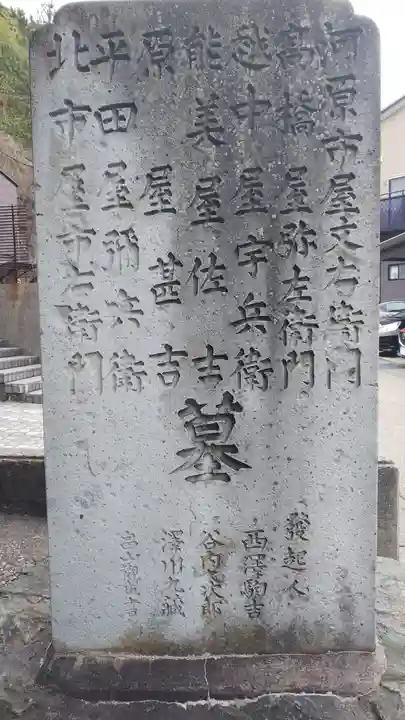 河原市屋文右衛門
髙橋屋弥左衛門
越中屋宇兵衛
能美屋佐吉
原屋甚吉
平田屋飛兵衛
北市屋市右衛門
墓
發起人
西澤駒吉
谷内次郎
澤川九藏